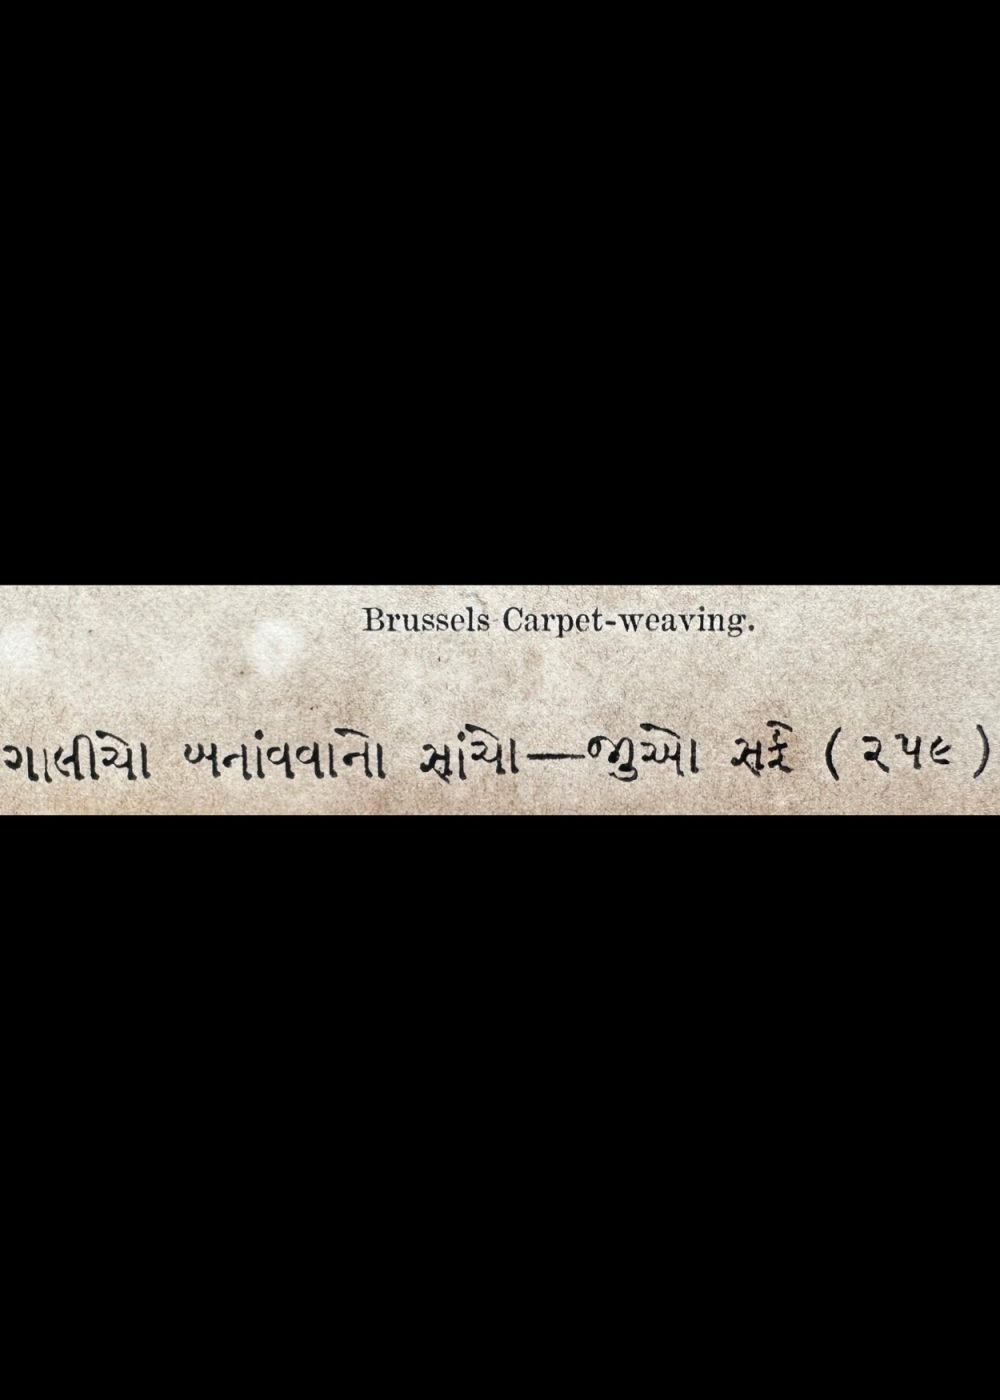 Brussels Carpet-weaving.
ગાલીચો બનાંવવાનો સાંચો—જુઓ સફે ( ૨૫૯ )